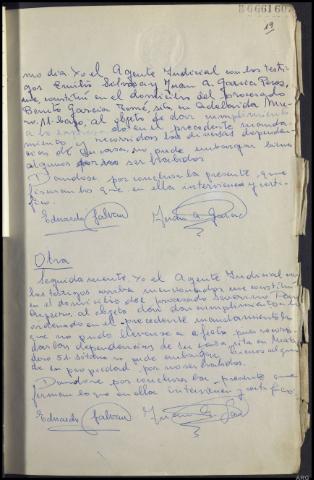 19
mo dia, Yo el Agente Judicial con los testi-
gos Emilio y Juan A. García Perez,
me constituí en el domicilio del procesado
Benito García Tomé, sito en Adelaida Mu-
11 bajo, al objeto de dar cumplimiento
a lo en el precedente manda-
miento, y recorridas las diversas dependen-
cias de su casa, no pude embargar bienes
algunos por no ser habidos
Dandose por conclusa la presente, que
firman los que en ella intervienen y certi-
fico.
Eduardo Galvan Juan A. Garcia
Otra
Seguidamente, Yo el Agente Judicial con
los testigos arriba mencionados me constituí
en el domicilio del procesado Severino
al objeto de dar cumplimiento a lo
ordenado en el precedente mandamiento
que no pudo llevarse a efecto, pues recorri-
das las dependencias de su casa, sita en
51 sotano no pude embargar bienes algunos
de su propiedad por no ser habidos.
Dandose por conclusa la presente que
firman los que en ella intervienen y certifico.
Eduardo Galvan Juan A. Garcia